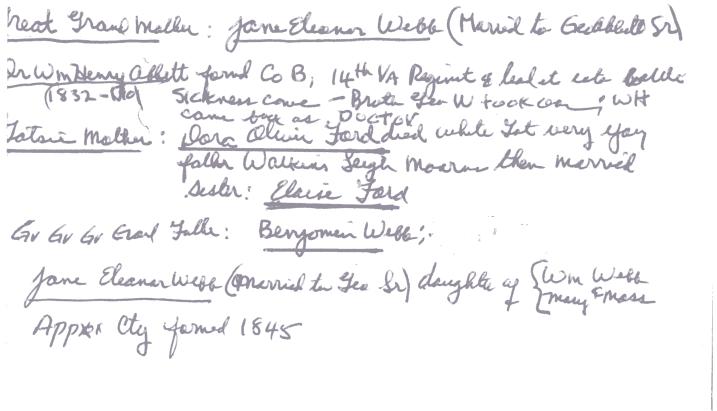 reat Grand Mother: Jane Eleanor Webb (Married to Geo Abbitt Sr)
Dr Wm Henry Abbitt formed Co B, 14th VA Regiment & led it into battle
(1832-        Sickness came - Brother Geo W took over; WH
came back as Doctor
Fatsie Mother: Dora Olivia Ford died while Fat very young
father Watkins Leigh         then married
sister: Elaise Ford
Gr Gr Gr Grand Father: Benjomin Webb;
Jane Eleanor Webb (Married to Geo Sr) daughter of { Wm Webb
Mary E Moss
Appox Cty formed 1845